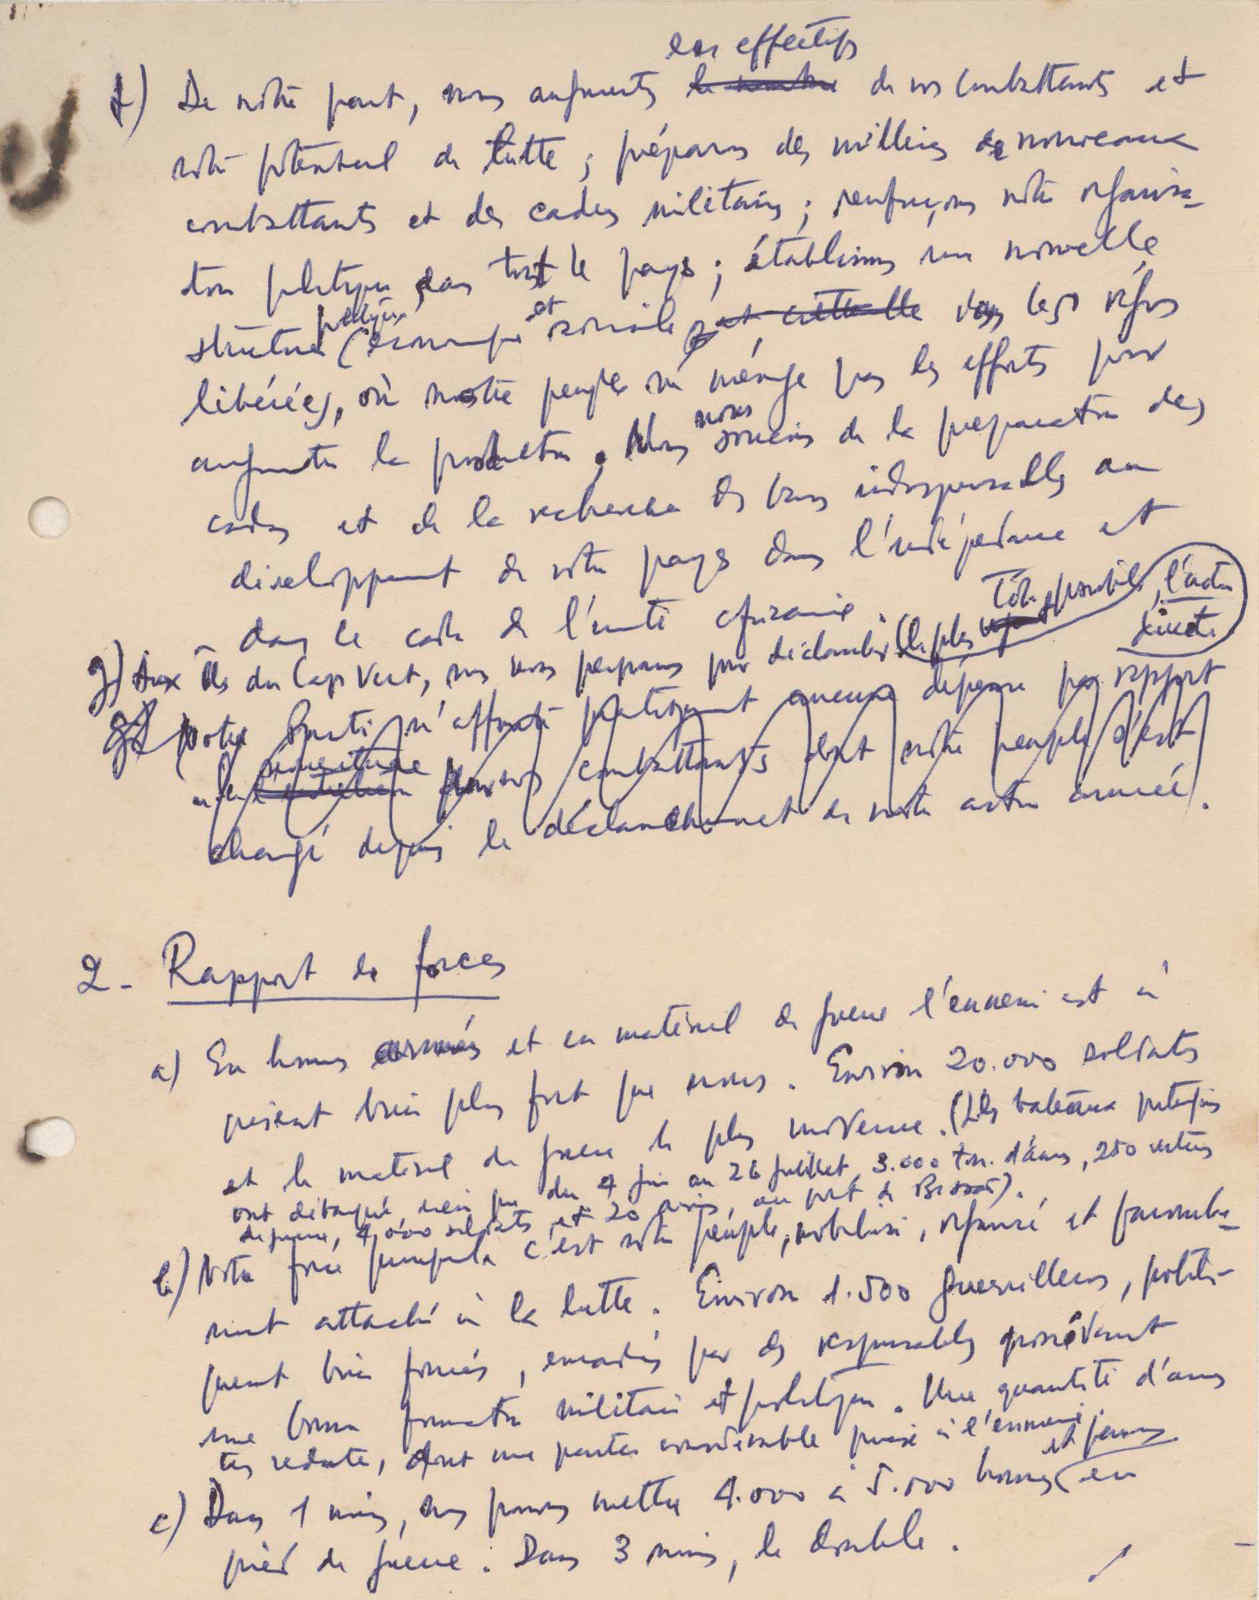 les effectifs
f) De notre part, nous augmentons le nombre de nos combattants et
notre potentiel de lutte ; préparons des milliers de nouveaux
combattants et des cadres militaires ; renforçons notre organisa-
tion politique dans tout le pays ; établissons une nouvelle
politique et
structure économique sociale et culturelle dans les régions
libérées, où notre peuple ne ménage pas les efforts pour
nous
augmenter la production. Nous soucions de la préparation des
cadres et de la recherche des bases indispensables au
développement de notre pays dans l'indépendance et
dans le cadre de l'unité africaine.
tôt possible, l'action
g) Aux îles du Cap Vert, nous nous préparons pour déclencher le plus directe
g) Notre Parti n'affronte pratiquement aucune dépense par rapport
nourriture
à l' de nos combattants dont notre peuple s'est
chargé depuis le déclanchement de notre action armée.
2 - Rapport de forces
a) En hommes armés et en matériel de guerre l'ennemi est à
présent bien plus fort que nous. Environ 20.000 soldats
et le matériel de guerre le plus moderne. (Les bateaux portugais
ont débarqué, rien que du 4 juin au 26 juillet, 3.000 ton. d'armes, 250 voitures
de guerre, 4.000 soldats et 20 avions au port de Bissao).
b) Notre force principale c'est notre peuple, mobilisé, organisé et
ment attaché à la lutte. Environ 1.500 guerrilleros, politi-
quement bien formés, encadrés par des responsables possédant
une bonne formation militaire et politique. Une quantité d'armes
très réduite, dont une partie considérable prise à l'ennemi.
et femmes
c) Dans 1 mois, nous pouvons mettre 4.000 à 5.000 hommes en
pied de guerre. Dans 3 mois, le double.